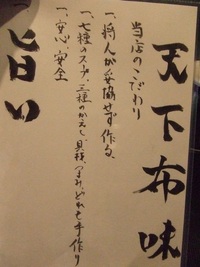 天下布味
当店のこだわり
一、将人が妥協せず作る、
一、七種のスープ、三種のかえし、具材、つまみ、どれも手作り
一、安心、安全
一、旨い